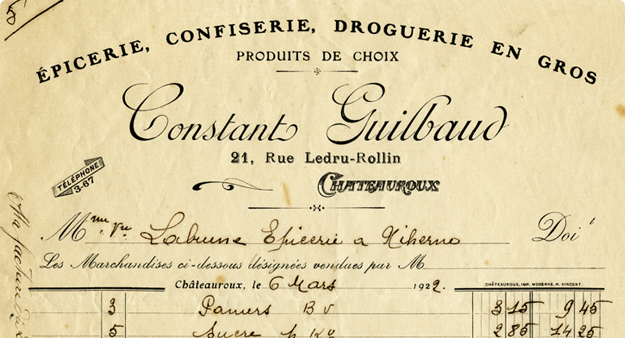 5
ÉPICERIE, CONFISERIE, DROGUERIE EN GROS
PRODUITS DE CHOIX
Constant Guilbaud
21, Rue Ledru-Rollin
TÉLÉPHONE
3-67
CHATEAUROUX
Mme Vve Labrune Epicerie a Niherne Doit
Les Marchandises ci-dessous désignées vendues par M
CHÂTEAUROUX, IMP. MODERNE, H. VINCENT.
Châteauroux, le 6 Mars 1922.
3 Paniers B V 3 15 9 45
5 Sucre 2 85 14 25